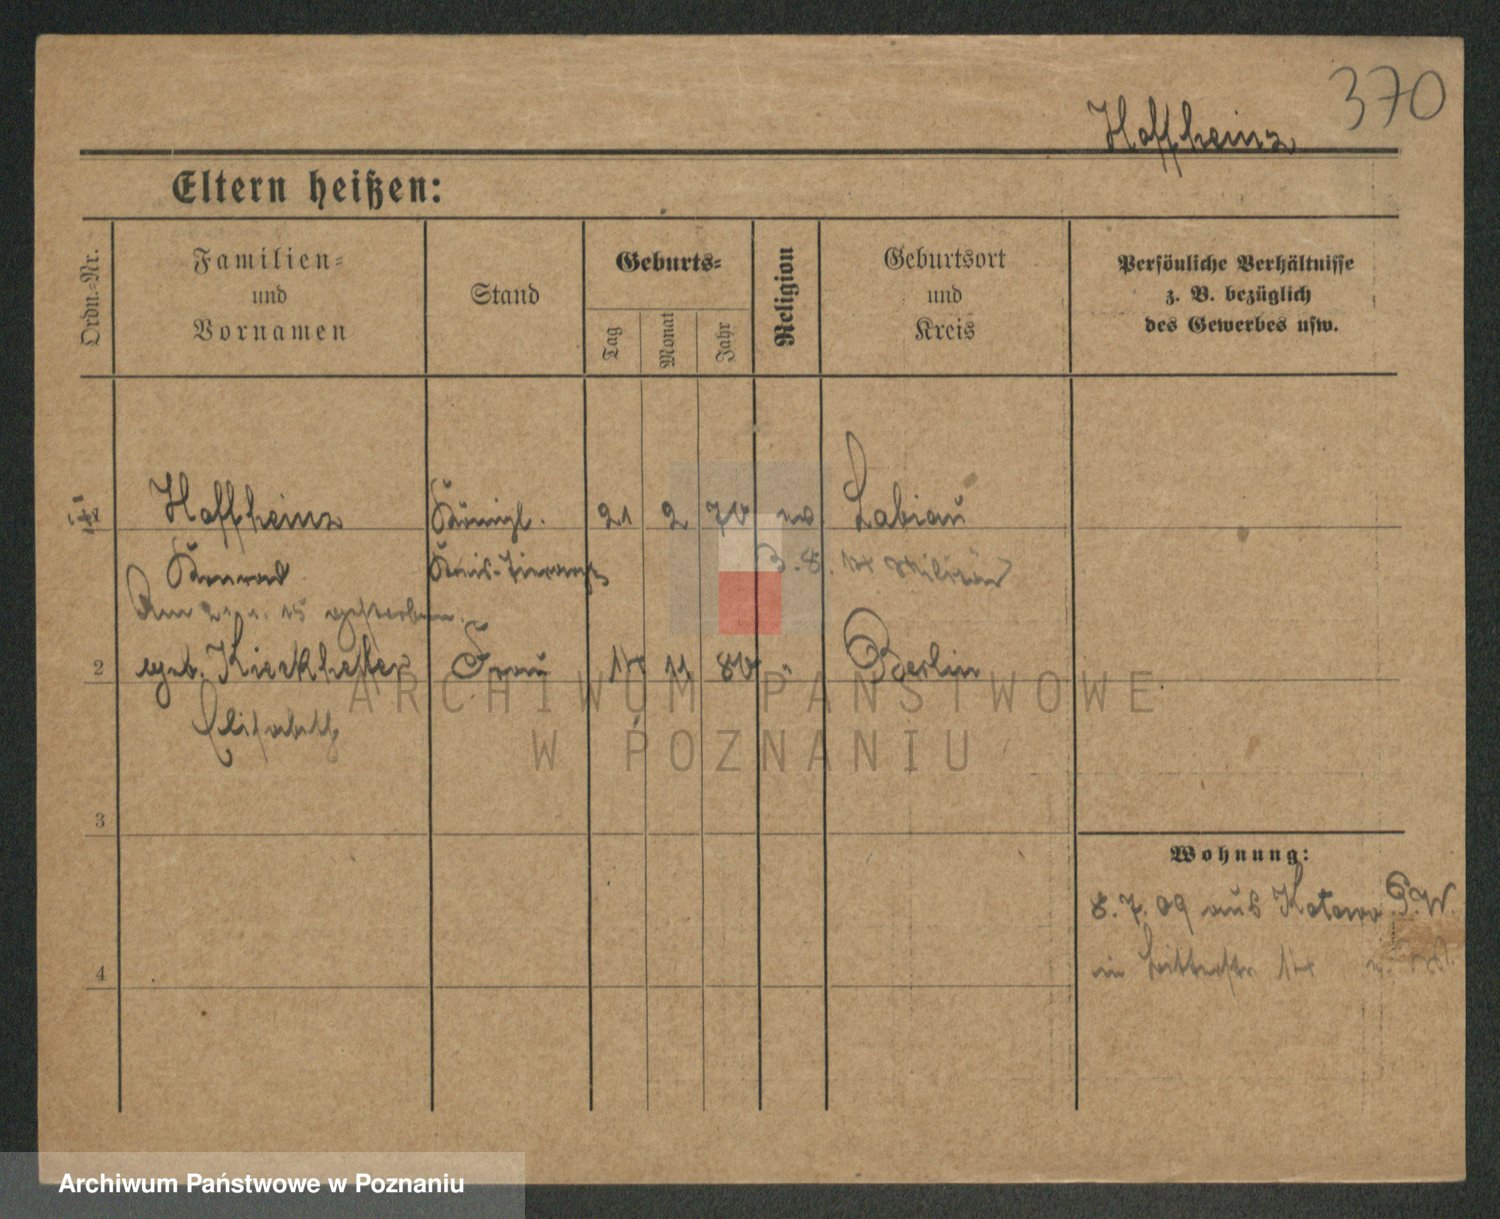 370
Hoffheinz
Eltern heißen:
Ordn.-Nr.
Familien-
und
Vornamen
Stand
Geburts-
Tag
Monat
Jahr
Religion
Geburtsort
und
Kreis
Persönliche Verhältnisse
z. B. bezüglich
des Gewerbes usw.
Hoffheinz Königl. 21 2 70 ev Labiau
Konrad Kreis-Tierarzt 3.8. Militär
Am gestorben.
2 geb. Kieckhefer Frau 14 11 80 " Berlin
Elisabeth
ARCHIWUM PAŃSTWOWE
W POZNANIU
3
Wohnung:
8.7.09 aus
in 14
4
Archiwum Państwowe w Poznaniu